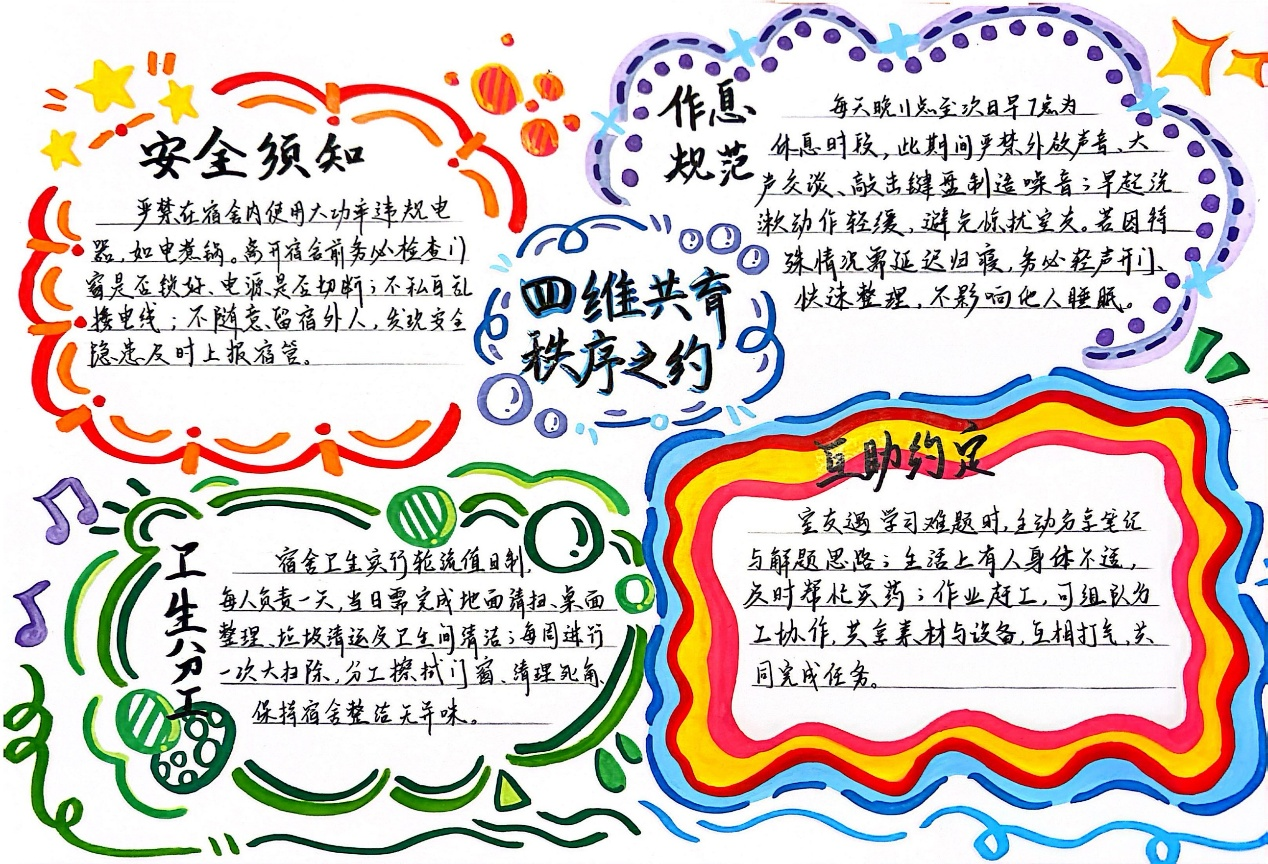 安全须知
严禁在宿舍内使用大功率违规电
器,如电煮锅。离开宿舍前务必检查门
窗是否锁好、电源是否切断;不私自乱
接电线;不随意留宿外人,发现安全
隐患及时上报宿管。
作息
规范
每天晚11点至次日早7点为
休息时段,此期间严禁外放声音、大
声交谈、敲击键盘制造噪音;早起洗
漱动作轻缓,避免惊扰室友。若因特
殊情况需延迟归寝,务必轻声开门、
快速整理,不影响他人睡眠。
四维共育
秩序之约
卫生分工
宿舍卫生实行轮流值日制,
每人负责一天,当日需完成地面清扫、桌面
整理、垃圾清运及卫生间清洁;每周进行
一次大扫除,分工擦拭门窗、清理死角
保持宿舍整洁无异味。
互助约定
室友遇学习难题时,主动分享笔记
与解题思路;生活上有人身体不适,
及时帮忙买药;作业赶工,可组队为
工协作,共享素材与设备,互相打气,共
同完成任务。